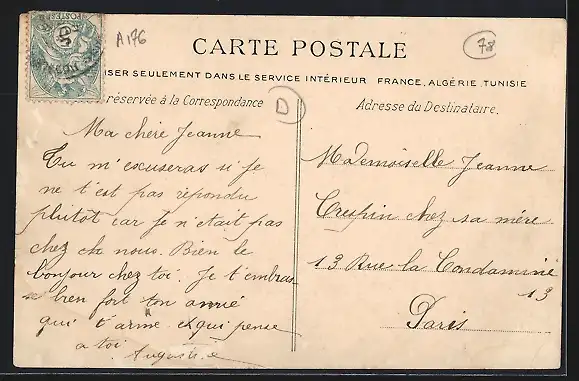 A176
78
CARTE POSTALE
ISER SEULEMENT DANS LE SERVICE INTÉRIEUR FRANCE, ALGÉRIE TUNISIE
réservée à la Correspondance
D
Adresse du Destinataire.
Ma chère Jeanne
Tu m'excuseras si je
ne t'est pas répondu
plutôt car je n'etait pas
chez che nous. Bien le
bonjour chez toi. Je t'embras
se bien fort ton amié
qui t'arme et qui pense
a toi
Augustine
Mademoiselle Jeanne
Crespin chez sa mère
13 Rue la Condamine
13
Paris